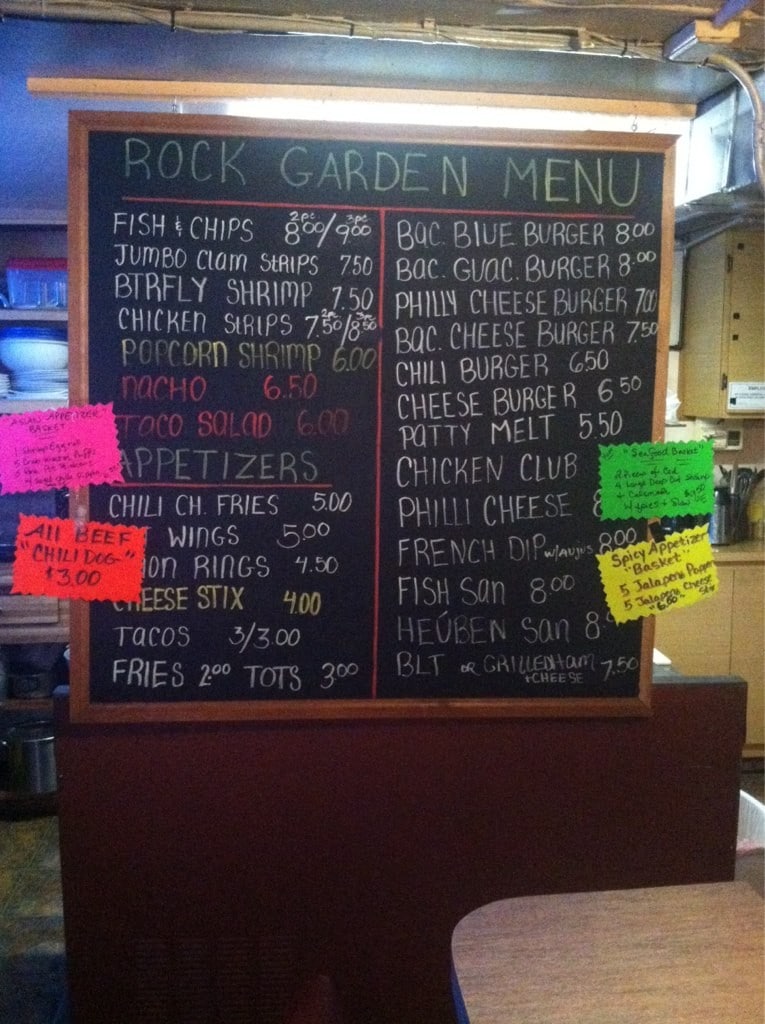 ROCK GARDEN MENU
FISH & CHIPS 2pc 8.00/3pc 9.00
JUMBO CLAM STRIPS 7.50
BTRFLY SHRIMP 7.50
CHICKEN STRIPS 2pc 7.50/3pc 8.50
POPCORN SHRIMP 6.00
NACHO 6.50
TACO SALAD 6.00
APPETIZERS
CHILI CH. FRIES 5.00
WINGS 5.00
ION RINGS 4.50
CHEESE STIX 4.00
TACOS 3/3.00
FRIES 2.00 TOTS 3.00
BAC. BLUE BURGER 8.00
BAC. GUAC. BURGER 8.00
PHILLY CHEESE BURGER 7.00
BAC. CHEESE BURGER 7.50
CHILI BURGER 6.50
CHEESE BURGER 6.50
PATTY MELT 5.50
CHICKEN CLUB
PHILLI CHEESE 8
FRENCH DIP W/AUJUS 8.00
FISH SAN 8.00
HEÚBEN SAN 8.
BLT OR GRILLEDHAM 7.50
+CHEESE
ASIAN APPETIZER
BASKET
1 Shrimp Eggroll
All BEEF
"CHILI DOG"
$3.00
"Seafood Basket"
2 Piece of Cod
+ Calamari
Spicy Appetizer
"Basket"
5 Jalapeno Poppers
5 Jalapeno Cheese
"6.50"